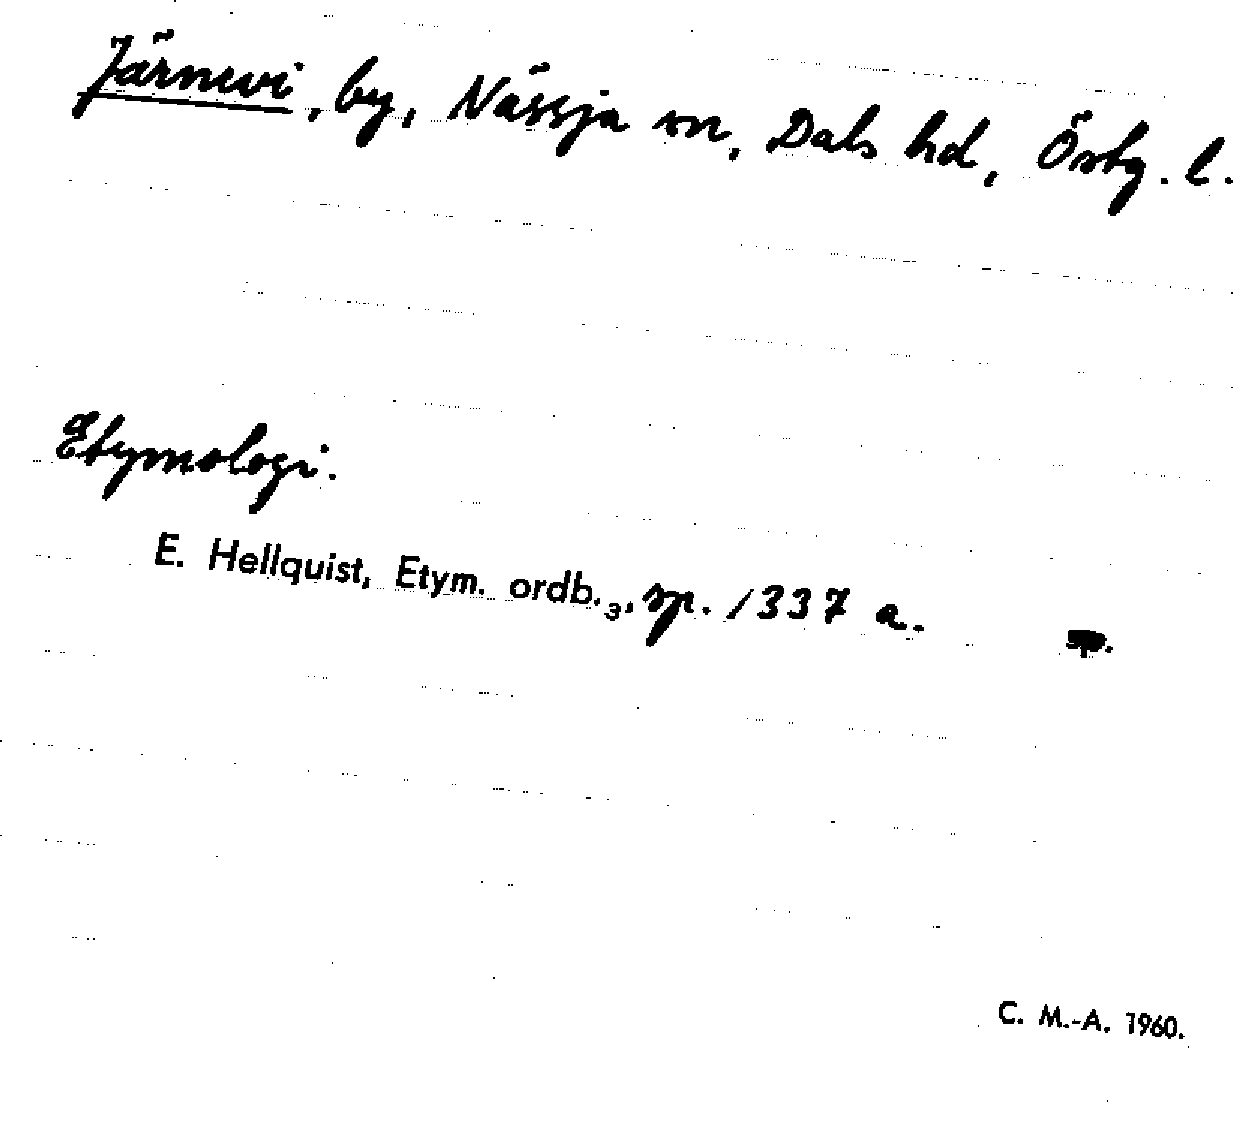 Järnevi, by, Nässja sn, Dals hd, Östg. l.
Etymologi.
E. Hellquist, Etym. ordb.₃, sp. 1337 a. sp.
C. M.-A. 1960.